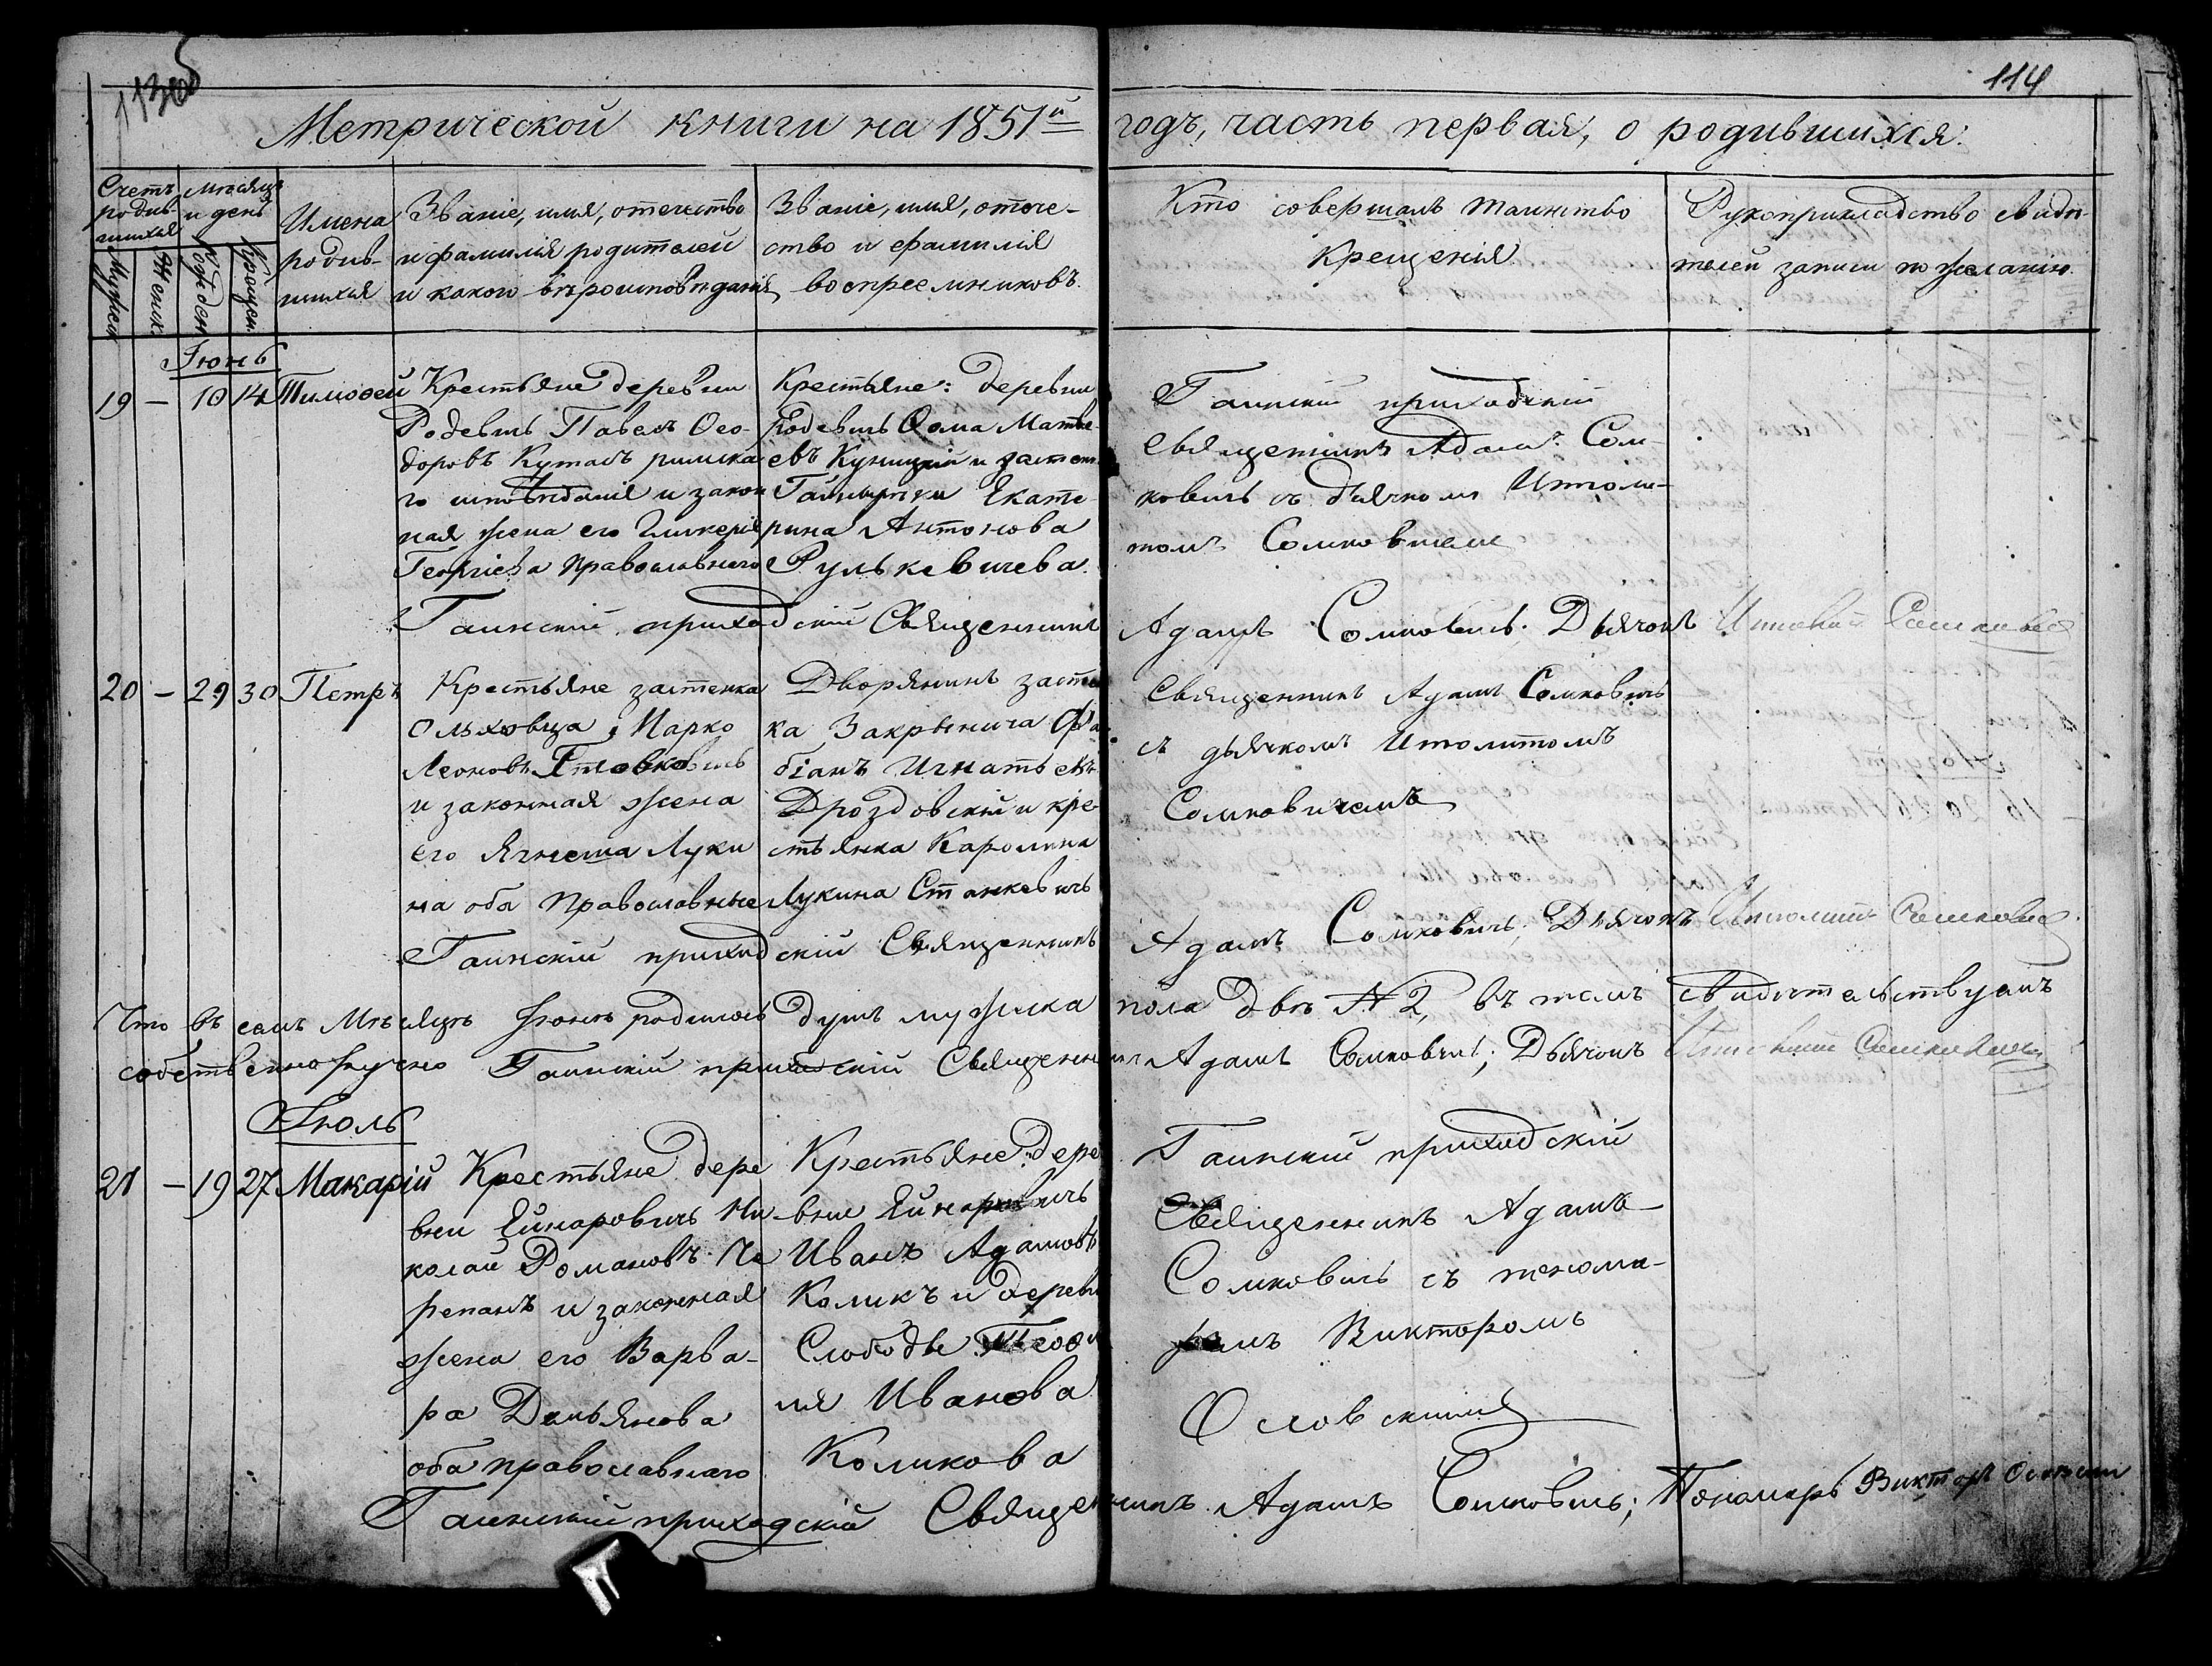 113об
114
Метрической книги на 1851й годъ, часть первая, о родившихся:
Счетъ родившихся
Мѣсяцъ и день
Мужеск.
Женск.
Рожден.
Крещен.
Имена родившихся
Званіе, имя, отечество
и фамилія родителей
и какого вѣроисповѣданія
Званіе, имя, отече-
ство и фамилія
воспреемниковъ.
Кто совершалъ таинство
Крещенія
Рукоприкладство свидѣ-
телей записи по желанію.
Іюнь
19 — 10 14 Тимоѳей
Крестьяне деревни
Родевичь Павелъ Ѳео-
доровъ Кутасъ римска
го исповѣданія и закон
ная жена его Гликерія
Георгіева Православнаго
Крестьяне: деревни
Родевичь Ѳома Матѳе-
евъ Куницкій и застен.
Екате-
рина Антонова
Рулькевичева.
Гаинскій приходскій
священникъ Адамъ Сом-
ковичь съ дьячкомъ Ипполи-
томъ Сомковичемъ
Гаинскій приходскій Священникъ Адамъ Сомковичь; Дьячокъ Ипполитъ Сомковичь
20 — 29 30 Петръ
Крестьяне застенка
Ольховца Марко
Леоновъ
и законная жена
его Ягнеша Луки
на оба Православные
Дворянинъ застен
ка Закрынича Фа
біанъ Игнатьевъ
Дроздовскій и кре-
стьянка Каролина
Лукина Станкевичь
Священникъ Адамъ Сомковичь
съ дьячкомъ Иполитомъ
Сомковичемъ
Гаинскій приходскій Священникъ Адамъ Сомковичь; Дьячокъ Ипполитъ Сомковичь
Что въ семъ Мѣсяцѣ Іюнѣ родилось душъ мужска пола двѣ № 2, въ томъ свидѣтельствуемъ
собственноручно Гаинскій приходскій Священникъ Адамъ Сомковичь; Дьячокъ Ипполитъ Сомковичь
Іюль
21 — 19 27 Макарій
Крестьяне дере
вни Ейнаровичь Ни-
колай Романовъ Че
репанъ и законная
жена его Варва-
ра Демьянова
оба православнаго
Крестьяне: дере
вни Ейнаровичь
Иванъ Адамовъ
Коликъ и деревн
Слободы Теофи
лія Иванова
Коликова
Гаинскій приходскій
Священникъ Адамъ
Сомковичь съ понома-
ремъ Викторомъ
Ословскимъ
Гаинскій приходскій Священникъ Адамъ Сомковичь; Пономарь ВикторъОсловскій